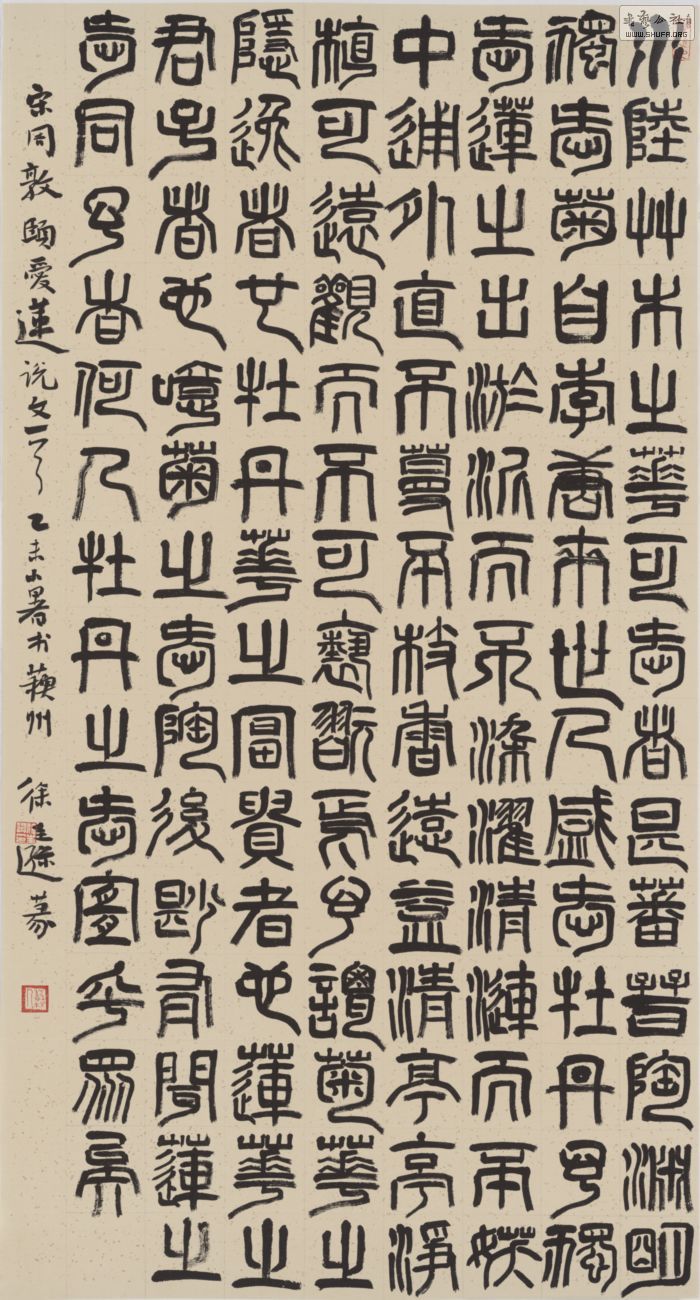 水陸艸木之華可愛者甚蕃晉陶淵明
獨愛菊自李唐來世人盛愛牡丹予獨
愛蓮之出淤泥而不染濯清漣而不妖
中通外直不蔓不枝香遠益清亭亭淨
植可遠觀而不可褻翫焉予謂菊華之
隱逸者也牡丹華之富貴者也蓮華之
君子者也噫菊之愛陶後尟有聞蓮之
愛同予者何人牡丹之愛宜乎眾矣
宋周敦頤愛蓮说文一 乙未小暑於蘓州 徐圭逊篆
书艺公社
WWW.SHUFA.ORG